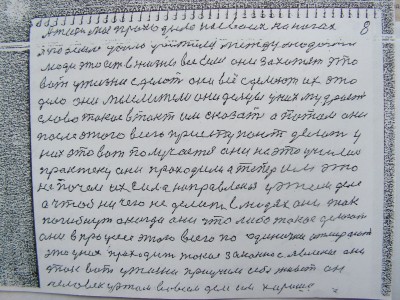 8
проходило на своих ногах
это было между людьми
люди это в жизни все они захотят это
вот у жизни сделать они всё сделают их это
дело они мыслители они у них мудрость
слово такое в такт им сказать а потом они
после этого всего приступают делать у
них это вот получается они на это учились
практику они проходили а теперь им это
не почем их сила направлена у этом деле
а чтоб ничего не делать в людях они так
погибнут они что либо такое делают
они в процессе этого всего по одиночки умирают
это у них проходит такое законное явление они
этак вот у жизни приучили себя живет он
человек у этом всем деле им хорошо